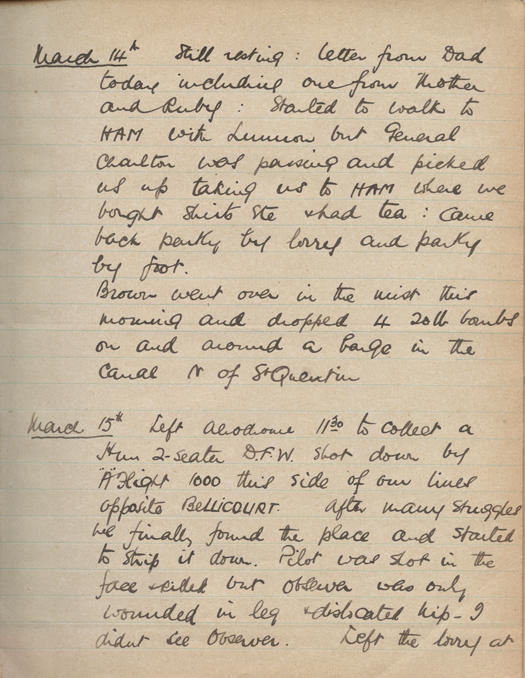 March 14th Still resting: letter from Dad
today including one from Mother
and Ruby: Started to walk to
HAM with Lunnon but General
Charlton was passing and picked
us up taking us to HAM where we
bought shirts etc & had tea: Came
back partly by lorry and partly
by foot.
Brown went over in the mist this
morning and dropped 4 20lb bombs
on and around a barge in the
Canal N of St Quentin
March 15th Left Aerodrome 11 30 to collect a
Hun 2-seater D.F.W. shot down by
"A" Flight 1000 this side of our lines
opposite BELLICOURT. After many struggles
we finally found the place and started
to strip it down. Pilot was shot in the
face & killed but observer was only
wounded in leg & dislocated hip - I
didnt see Observer. Left the lorry at